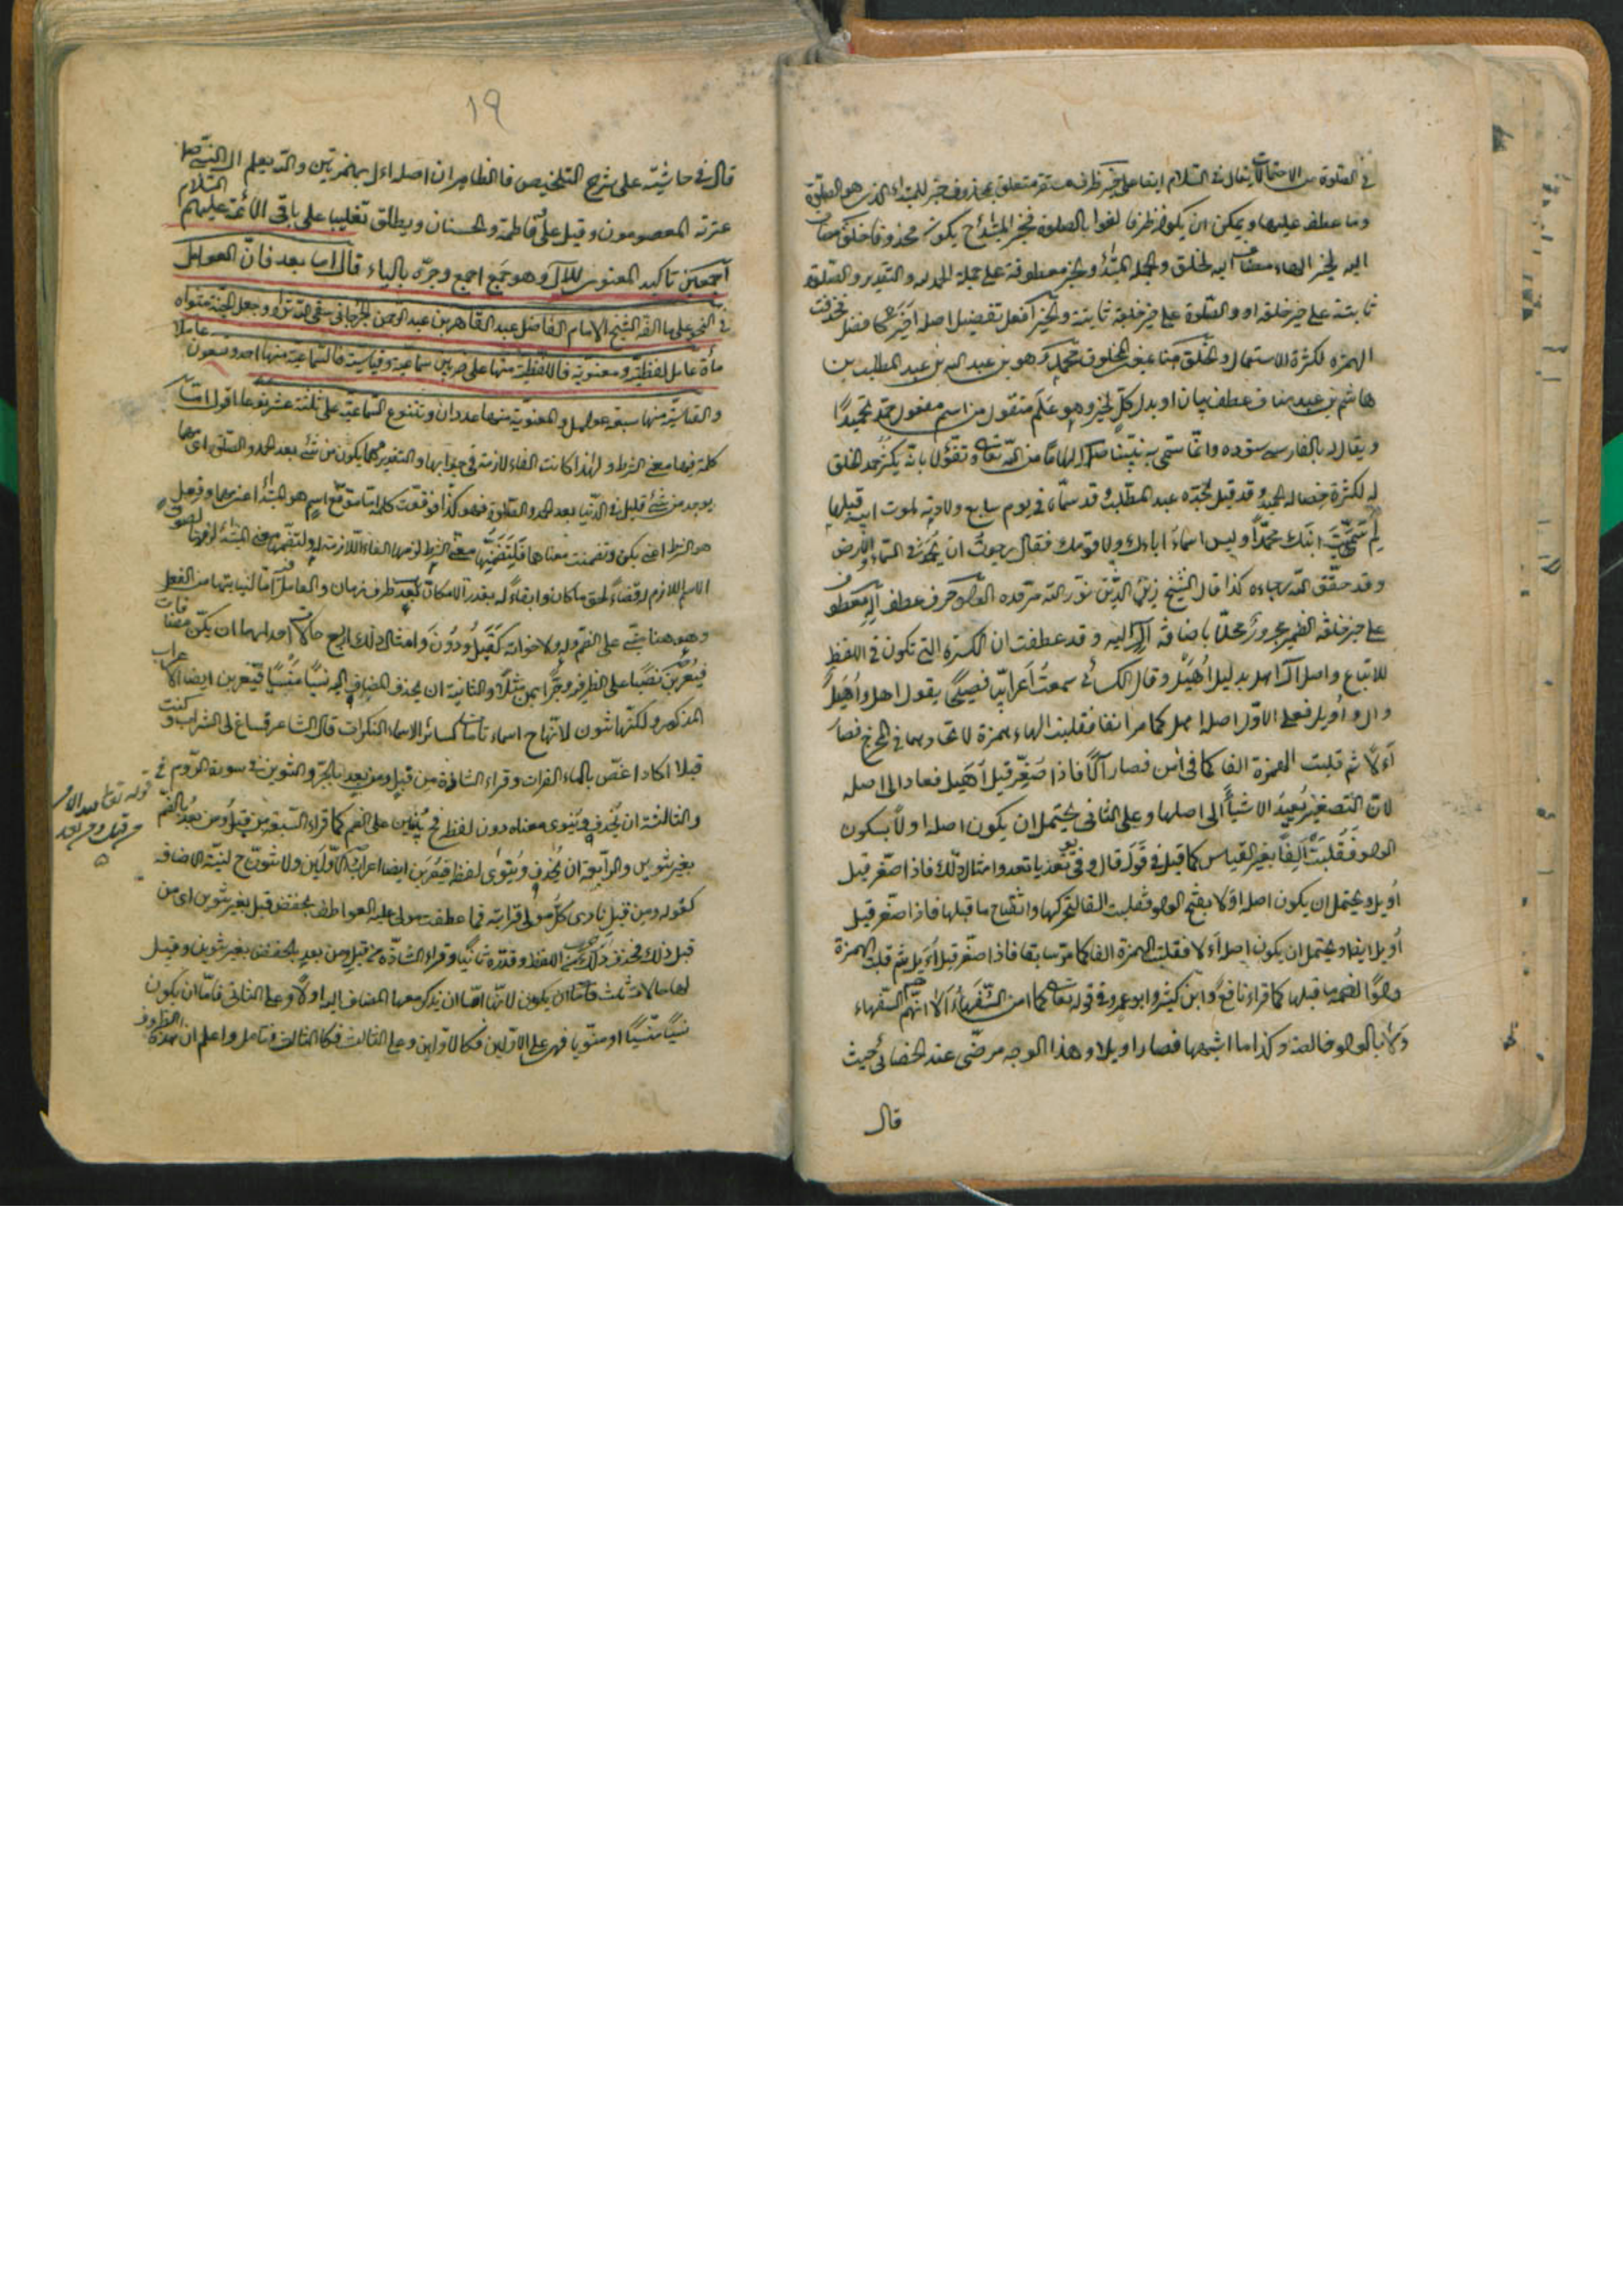 في الصلوة من الاحتمالات يقال في السلام ايضا على خير ظرف مستقر متعلق بمحذوف خبر للمبتداء الذي هو الصلوة
وما عطف عليها ويمكن ان يكون ظرفا لغوا بالصلوة فخبر المبتداء ح يكون محذوفا خلق مضاف
اليه لخير الهاء مضاف اليه لخلق والجملة المبتداء والخبر معطوفة على جملة الحمد لله والتقدير والصلوة
ثابتة على خير خلقه او والصلوة على خير خلقه ثابتة والخير افعل تفضيل اصله اخير كافضل فحذفت
الهمزة لكثرة الاستعمال والخلق هنا بمعنى المخلوق محمد وهو بن عبد الله بن عبد المطلب بن
هاشم بن عبد مناف عطف بيان او بدل كل لخير وهو علم منقول من اسم مفعول حمد تحميدا
ويقال له بالفارسي ستوده وانما سمى به نبينا الهاما من الله تعالى وتفؤلا بانه يكثر حمد الخلق
له لكثرة خصاله الحميدة وقد قيل لجده عبد المطلب وقد سماه في يوم سابع ولادته لموت ابيه قبلها
لم سميت ابنك محمدا وليس اسماء اباءك ولا قومك فقال رجوت ان يحمد في السماء والارض
وقد حقق الله رجاءه كذا قال الشيخ زين الدين نور الله مرقده الواو حرف عطف آله معطوف
على خير خلقه الضمير مجرور محلا باضافة الال اليه وقد عطفت ان الكسرة التي تكون في اللفظ
للاتباع واصل آل اهل بدليل اهيل وقال الكسائي سمعت اعرابيا فصيحا يقول اهل واهيل
وال واويل فعلى الاول اصله اهل كما مر انفا فقلبت الهاء همزة لاتحادهما في المخرج فصار
اءلا ثم قلبت الهمزة الفا كما في امن فصار آلا فاذا صغر قيل اهيل فعاد الى اصله
لان التصغير يعيد الاشياء الى اصلها وعلى الثاني يحتمل ان يكون اصله اولا بسكون
الواو فقلبت الفا بغير القياس كما قيل في قول قال وفي امثال ذلك فاذا صغر قيل
اويل ويحتمل ان يكون اصله اولا بفتح الواو فقلبت الفا لتحركها وانفتاح ما قبلها فاذا صغر قيل
اويل ايضا ويحتمل ان يكون اصله اءلا فقلبت الهمزة الفا كما مر سابقا فاذا صغر قيل اءيل ثم قلبت الهمزة
واوا لضمة ما قبلها كما قراء نافع وابن كثير وابو عمرو في قوله تعالى كما امن السفهاء الا انهم هم السفهاء
ولا بالواو خالصة وكذا ما اشبهها فصار اويلا وهذا الوجه مرضى عند الخفائي حيث
قال
١٩
قال في حاشيته على شرح التلخيص فالظاهر ان اصله اءل بهمزتين والله يعلم ال النبي صلى
عترته المعصومون وقيل على وفاطمة والحسنان ويطلق تغليبا على باقى الائمة عليهم السلام
اجمعين تاكيد المعنوى للال وهو جمع اجمع وجره بالياء قال اما بعد فان العوامل
في النحو على ما الفه الشيخ الامام الفاضل عبد القاهر بن عبد الرحمن الجرجاني سقى الله ثراه وجعل الجنة مثواه
مأة عامل لفظية ومعنوية فاللفظية منها على ضربين سماعية وقياسية فالسماعية منها احد وتسعون عاملا
والقياسية منها سبعة عوامل والمعنوية منها عددان وتتنوع السماعية على ثلثة عشر نوعا اقول اما
كلمة فيها معنى الشرط ولهذا كانت الفاء لازمة في جوابها والتقدير مهما يكون من شئ بعد الحمد والصلوة اى مهما
يوجد من شئ قليل في الدنيا بعد الحمد والصلوة فهو كذا فوقعت كلمة اما موقع اسم هو المبتداء اعنى مهما وفعل
هو الشرط اعنى يكن وتضمنت معناهما فلتضمنها معنى الشرط لزمها الفاء اللازمة له ولتضمنها معنى المبتداء لزمها لصوق
الاسم اللازم له قضاء لحق ما كان وابقاء له بقدر الامكان بعد ظرف زمان والعامل فيه اما لنيابتها من الفعل
وهو هنا مبنى على الضم وله ولاخواته كقبل ودون وامثال ذلك اربع حالات احدايها ان يكن مضافات
فيعربن نصبا على الظرفية وجرا بمن مثلا والثانية ان يحذف المضاف اليه نسيا منسيا فيعربن ايضا الاعراب
المذكور ولكنها تنون لانها ح اسماء تامة كسائر الاسماء النكرات قال الشاعر فساغ لى الشراب وكنت
قبلا اكاد اغص بالماء الفرات وقراء الشاذة من قبل ومن بعد بالجر والتنوين في سورة الروم في
والثالثة ان تحذف وينوى معناه دون لفظ فح يبنين على الضم كما قراء السبعة من قبل ومن بعد بالضم
بغير تنوين والرابعة ان يحذف وينوى لفظه فيعربن ايضا اعراب الاولين ولا تنون ح لنية الاضافة
كقوله ومن قبل نادى كل مولى قرابته فما عطفت مولى عليه العواطف بخفض قبل بغير تنوين اى من
قبل ذلك فحذف ذلك من اللفظ وقدره ثانيا وقراء الشاذة من قبل ومن بعد بالخفض بغير تنوين وقيل
لها حالات ثلث فاما ان يكون لانها اما ان يذكر معها المضاف اليه اولا وعلى الثاني فاما ان يكون
نسيا منسيا او منويا فهي على الاولين فكالاولين وعلى الثالث فكالثالث فتامل واعلم ان هذه الظروف
قوله تعالى لله الامر
من قبل ومن بعد